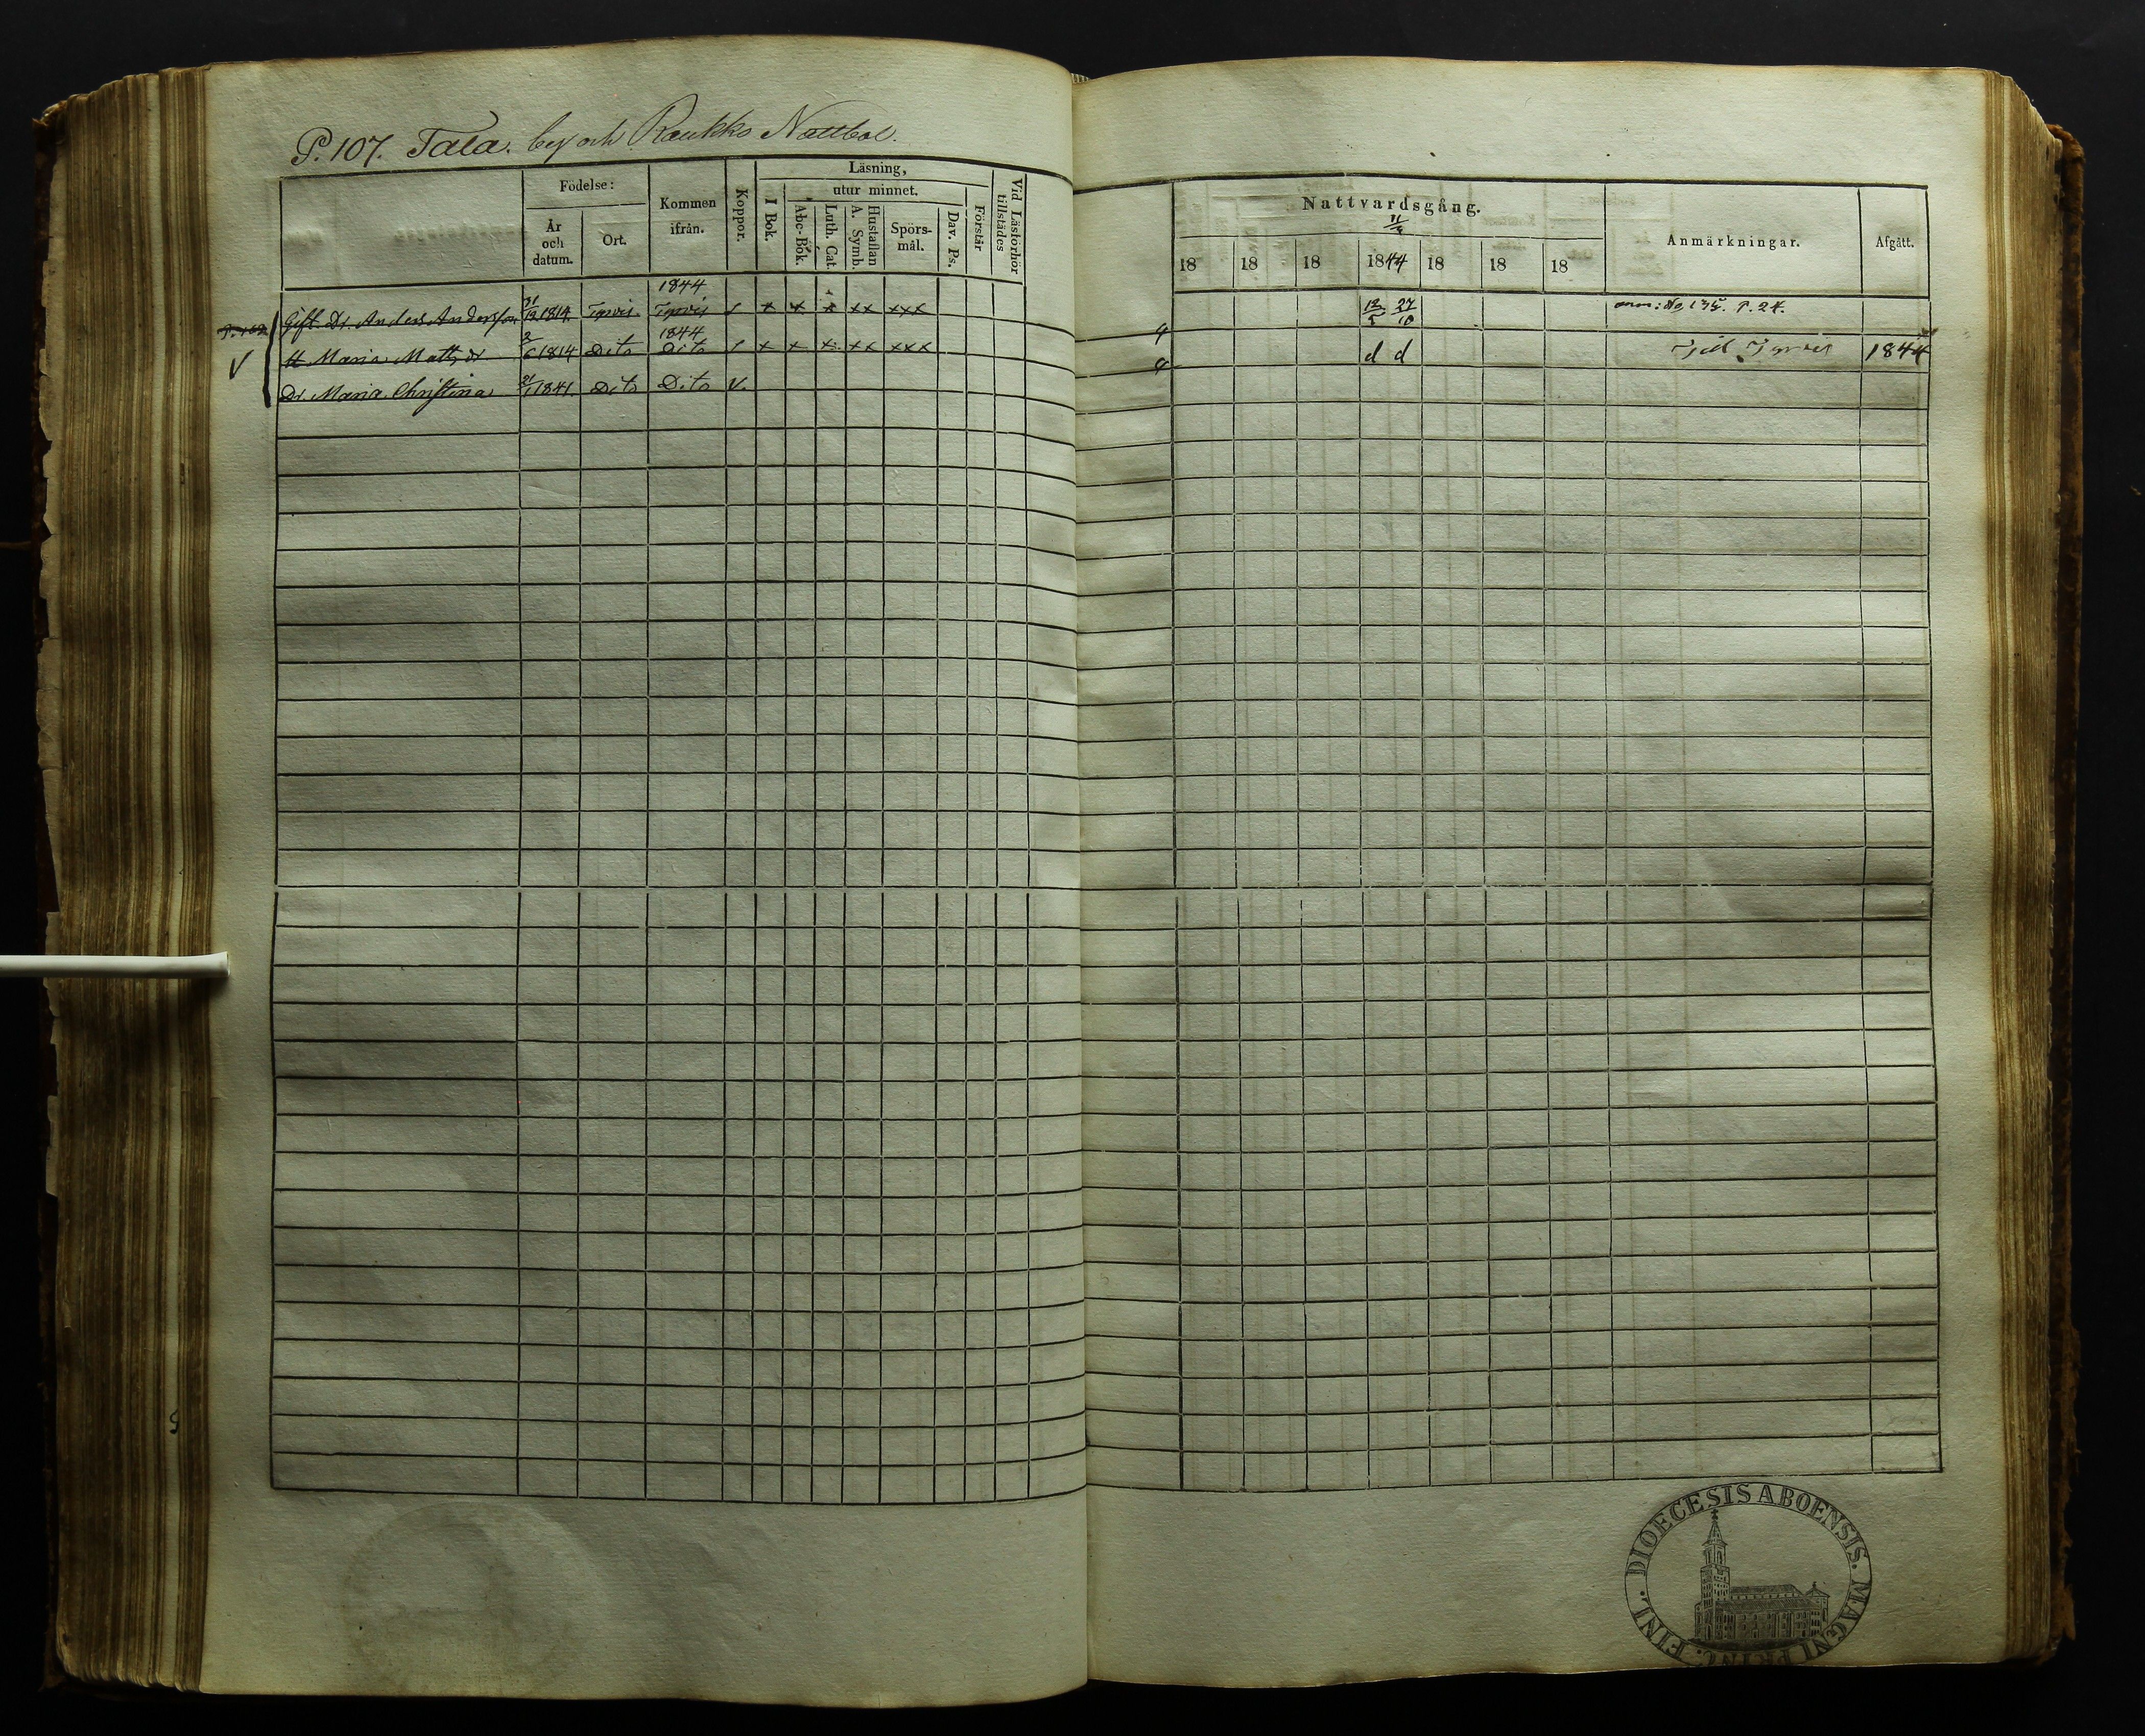 P. 107. Tala. by och Raukko Nattbol.
Födelse:
År och datum.
Ort.
Kommen ifrån.
Koppor.
Läsning,
I Bok.
utur minnet.
Abc-Bok.
Luth. Cat.
Hustaflan A. Symb.
Spörsmål.
Dav. Ps.
Förstår
Vid Läsförhör tillstädes
Nattvardsgång.
11/4
18 18 18 1844 18 18 18
Anmärkningar.
Afgått.
1844
Gift. Dr. Anders Andersson 31/12 1814. Tyrvis Tyrvis x x x xx xxx 12/5 27/10 P. 24.
1844
H. Maria Mattsdr 2/6 1814 Dito Dito x x x xx xxx d d Till Tyrvis 1844
Dr. Maria Christina 21/1 1841. Dito Dito v.
DIOECESIS ABOENSIS. MAGNI PRINC. FINL.